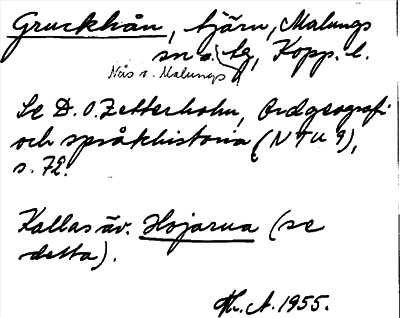 Gruckhån, tjärn, Malungs
sn o. tg, Kopp. l.
Näs s. Malungs
Se D. O. Zetterholm, Ordgeografi
och språkhistoria (NTU 9),
s. 72.
Kallas äv. Hojarna (se
detta).
Th. A. 1955.